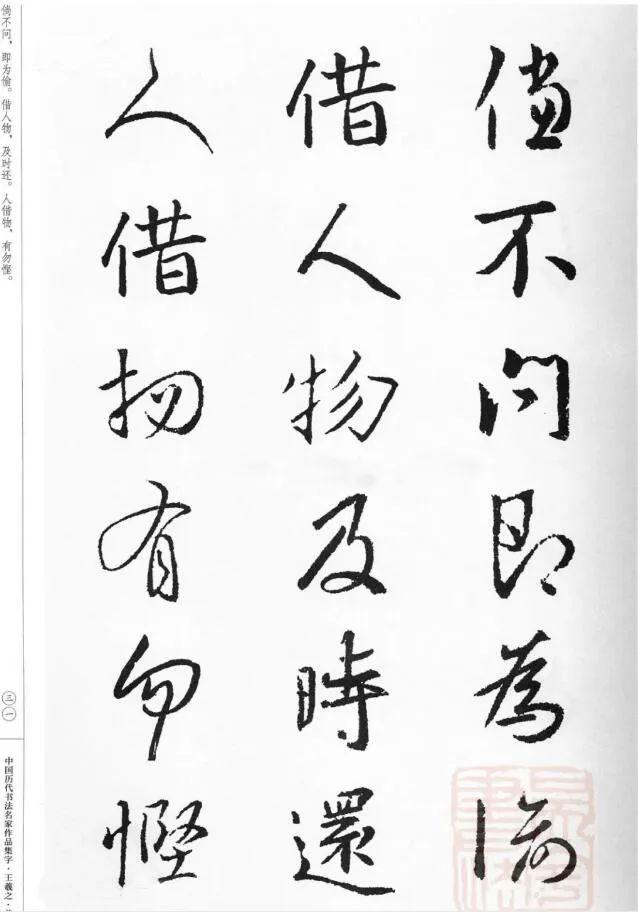 儻不問即為偷
借人物及時還
人借物有勿慳
倘不问，即为偷。借人物，及时还。人借物，有勿悭。
三一
中国历代书法名家作品集字·王羲之·